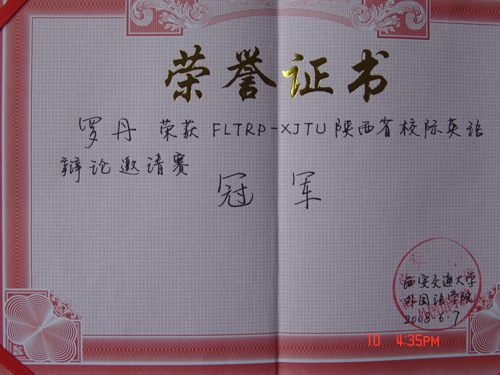 荣誉证书
罗丹 荣获 FLTRP-XJTU陕西省校际英语
辩论邀请赛
冠 军
西安交通大学
外国语学院
2008.6.7
10 4:35PM